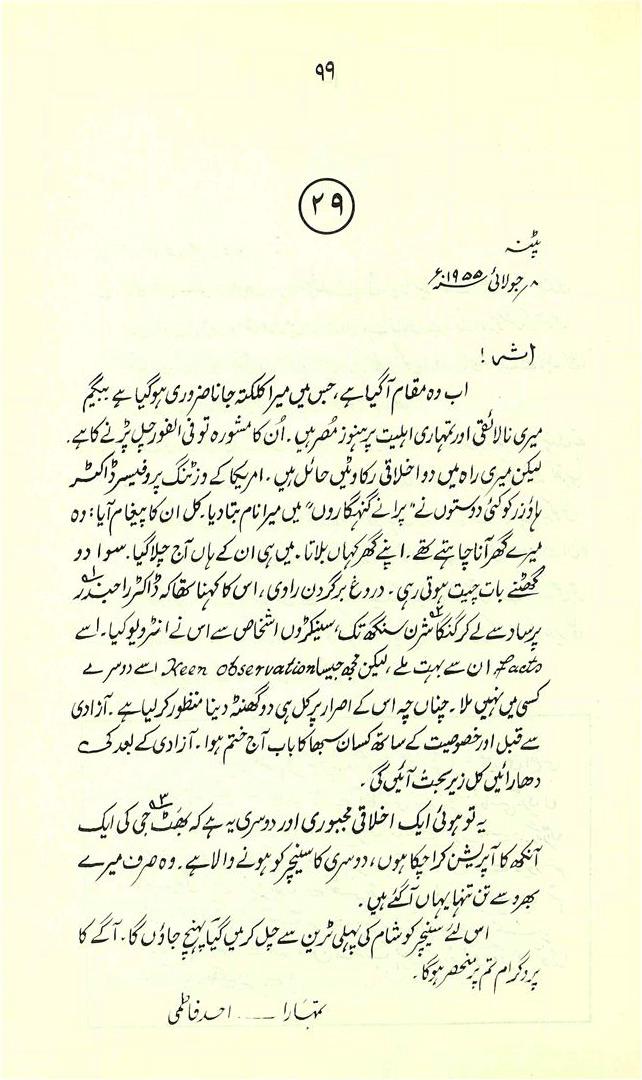 ۹۹
۲۹
پٹنہ
۸؍ جولائی ۱۹۵۵ء
اشہ!
اب وہ مقام آگیا ہے، جس میں میرا کلکتہ جانا ضروری ہوگیا ہے بیگم
میری نالائقی اور تمہاری اہلیت پر ہنوز مصر ہیں۔ اُن کا مشورہ تو فی الفور چل پڑنے کا ہے۔
لیکن میری راہ میں دو اخلاقی رکاوٹیں حائل ہیں۔ امریکا کے وزٹنگ پروفیسر ڈاکٹر
ہاؤزر کو کئی دوستوں نے "پرانے گنہگاروں" میں میرا نام بتا دیا۔ کل ان کا پیغام آیا: وہ
میرے گھر آنا چاہتے تھے۔ اپنے گھر کہاں بلاتا۔ میں ہی ان کے ہاں آج چلا گیا۔ سوا دو
گھنٹے بات چیت ہوتی رہی۔ دروغ بر گردن راوی، اس کا کہنا تھا کہ ڈاکٹر راجندر۹۱
پرساد سے لے کر گنگا شرن۹۲ سنگھ تک، سینکڑوں اشخاص سے اس نے انٹرویو کیا۔ اسے
Facts ان سے بہت ملے، لیکن مجھ جیسا Keen observation اسے دوسرے
کسی میں نہیں ملا۔ چناں چہ اس کے اصرار پر کل ہی دو گھنٹہ دینا منظور کر لیا ہے۔ آزادی
سے قبل اور خصوصیت کے ساتھ کسان سبھا کا باب آج ختم ہوا۔ آزادی کے بعد کی
دھارائیں کل زیر بحث آئیں گی۔
یہ تو ہوئی ایک اخلاقی مجبوری اور دوسری یہ ہے کہ بھٹ۹۳ جی کی ایک
آنکھ کا آپریشن کرا چکا ہوں، دوسری کا سنیچر کو ہونے والا ہے۔ وہ صرف میرے
بھروسے تن تنہا یہاں آگئے ہیں۔
اس لئے سنیچر کو شام کی پہلی ٹرین سے چل کر میں گیا پہنچ جاؤں گا۔ آگے کا
پروگرام تم پر منحصر ہوگا۔
تمہارا ـــــ احمد فاطمی